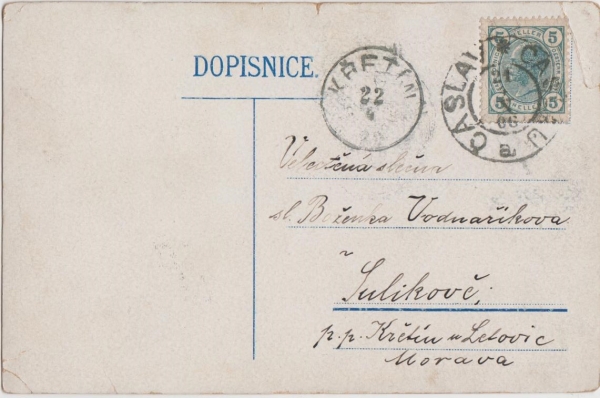 DOPISNICE.
KŘETÍN
22
5 HELLER 5
5 5
ČASLAU
ČÁSLAV
06
a
Velectěná slečna
sl. Boženka Vodnaříkova
v
Sulikově;
p. p. Křetín u Letovic
Morava